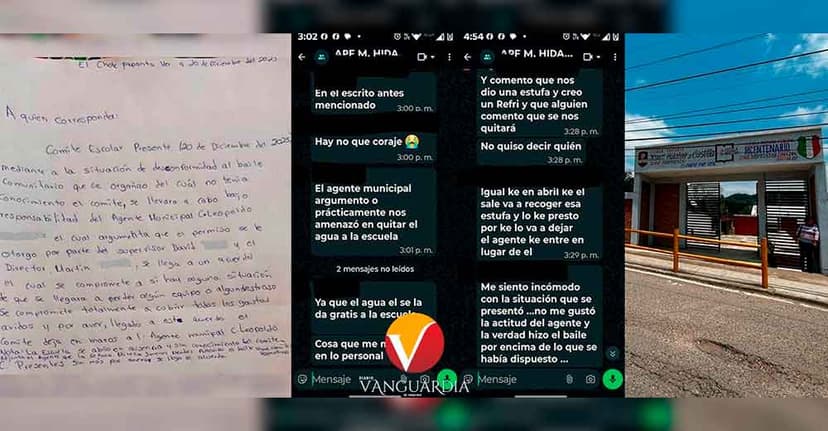 El Chote papantla Ver a 20 de Diciembre del 2025
A quien corresponda:
Comite Escolar Presente (20 de Diciembre del 2025)
mediante a la situación de desconformidad al baile
comunitario que se organizo del cual no tenia
conocimiento el comite, se llevara a cabo bajo
responsabilidad del Agente Municipal C. Leopoldo
el cual argumentita que el permiso se le
otorgo por parte del supervisor David y el
Director Martin , se llego a un acuerdo
el cual se compromete a si hay alguna situación
de que se llegara a perder algún equipo o algun destrozo
se compromete totalmente a cubrir todos los gastos
avidos y por aver, llegado a este acuerdo el
Comite deja en manos a l Agente municipal C. Leopoldo
Nota: La Escuela se abrio en ausencia y sin conocimiento del comite
3:02
ARE M. HIDA...
En el escrito antes
mencionado
3:00 p. m.
Hay no que coraje 😭
3:00 p. m.
El agente municipal
argumento o
prácticamente nos
amenazó en quitar el
agua a la escuela
3:01 p. m.
2 mensajes no leídos
Ya que el agua el se la
da gratis a la escuela
Cosa que me m
en lo personal
Mensaje
4:54
ARE M. HIDA...
Y comento que nos
dio una estufa y creo
un Refri y que alguien
comento que se nos
quitará
3:28 p. m.
No quiso decir quién
3:28 p. m.
Igual ke en abril ke el
sale va a recoger esa
estufa y lo ke presto
por ke lo va a dejar
el agente ke entre en
lugar de el
3:29 p. m.
Me siento incómodo
con la situación que se
presentó ...no me gustó
la actitud del agente y
la verdad hizo el baile
por encima de lo que se
había dispuesto ...
Mensaje
V
DIARIO
VANGUARDIA
DE VERACRUZ
BICENTENARIO